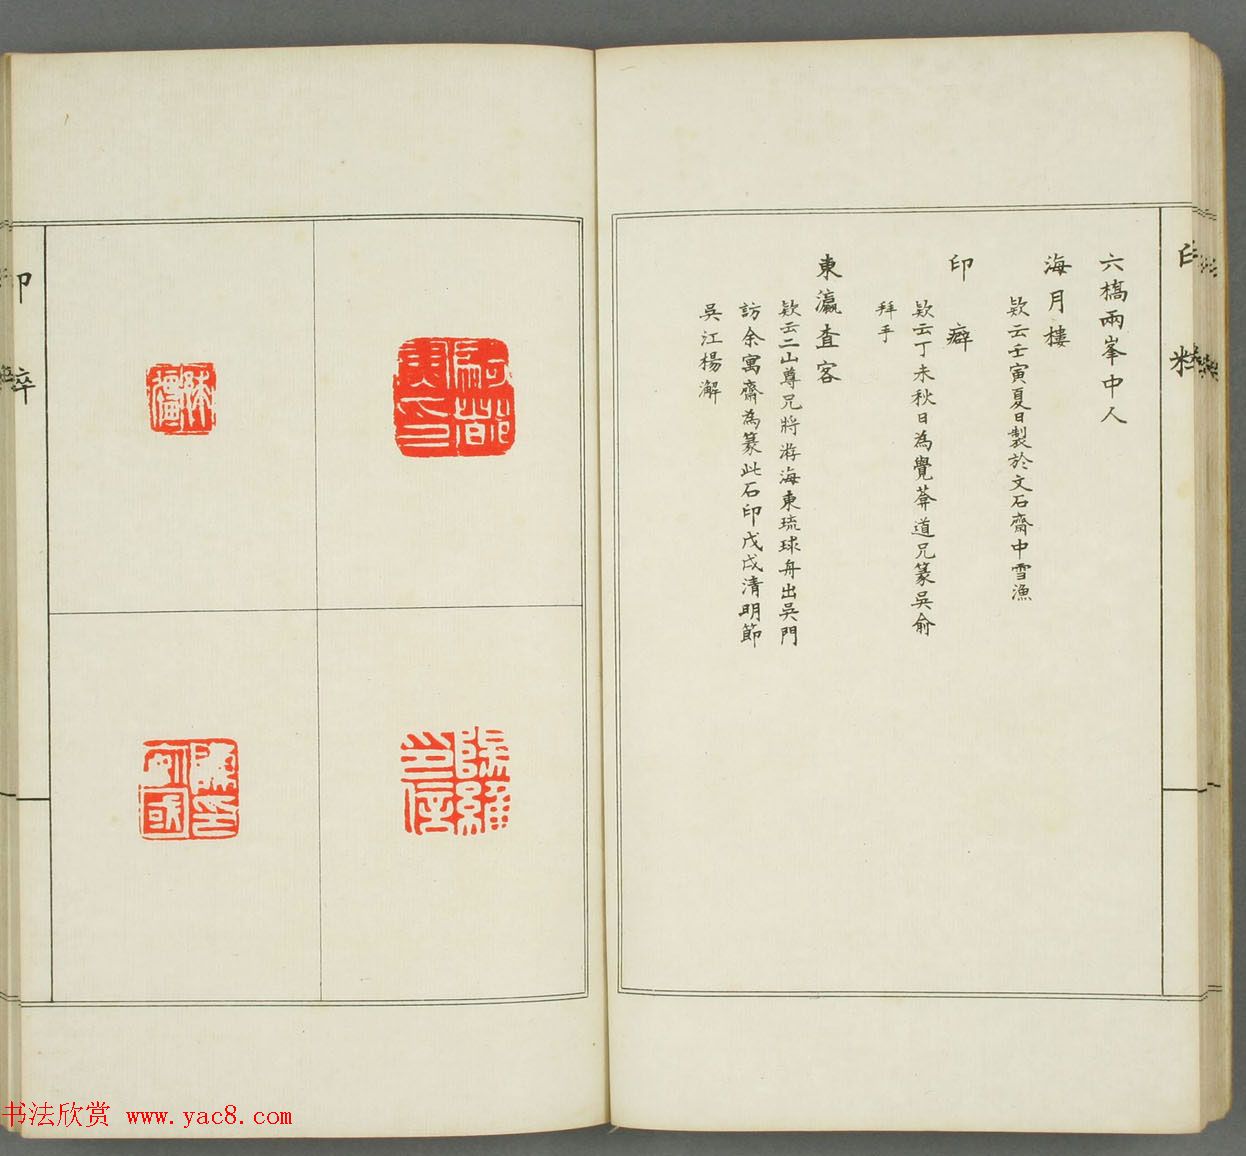 六橋兩峯中人
海月樓
款云壬寅夏日製於文石齋中雪漁
印癖
款云丁未秋日為覺葊道兄篆吳俞
拜手
東瀛查客
款云二山尊兄將游海東琉球舟出吳門
訪余寓齋為篆此石印戊戌清明節
吳江楊澥
印粹
书法欣赏 www.yac8.com